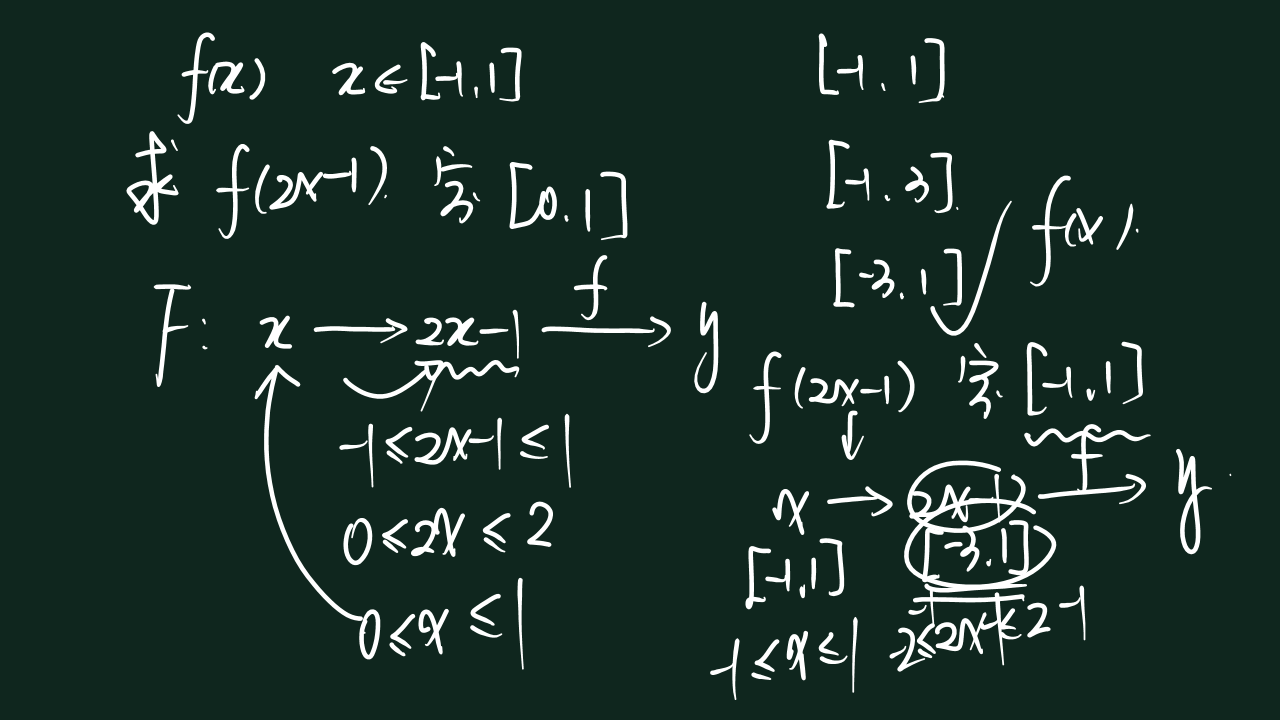 f(x) x∈[-1,1]
求 f(2x-1) 定 [0,1]
F: x → 2x-1 f → y
-1≤2x-1≤1
0≤2x≤2
0≤x≤1
[-1,1]
[-1,3]
[-3,1] f(x).
f(2x-1) 定 [-1,1]
x → 2x-1 f → y
[-1,1] [-3,1]
-1≤x≤1 -2-1≤2x-1≤2-1